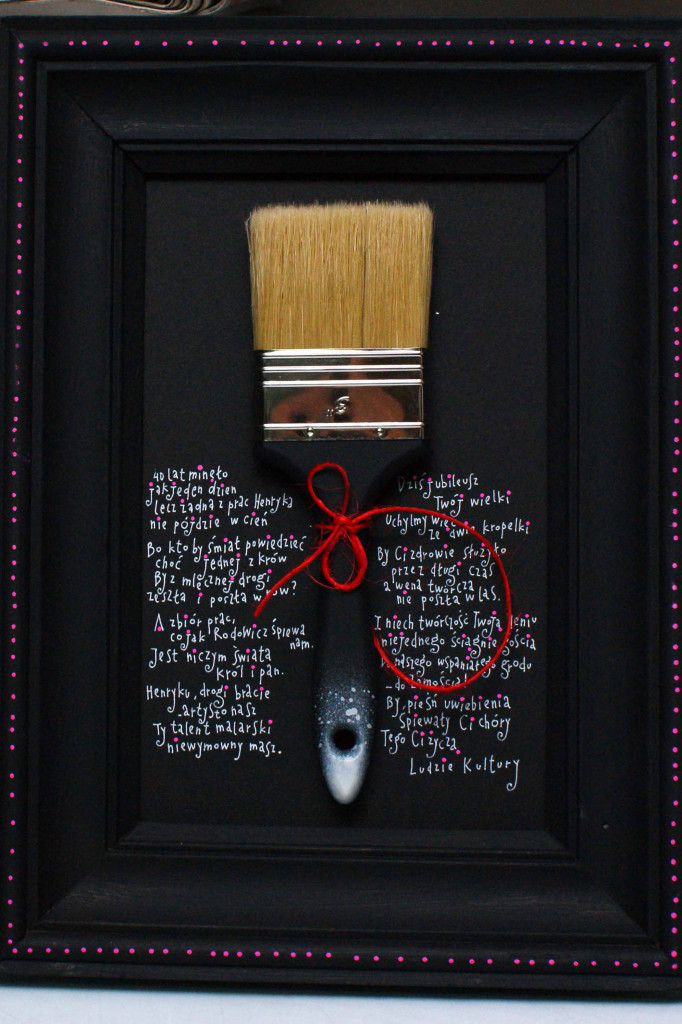 40 lat minęło
jak jeden dzień
lecz żadna z prac Henryka
nie pójdzie w cień
Bo kto by śmiał powiedzieć
choć jednej z krów
By z mlecznej drogi
zeszła i poszła w rów?
A zbiór prac,
co jak Rodowicz śpiewa
nam.
Jest niczym świata
król i pan.
Henryku, drogi bracie
artysto nasz
Ty talent malarski
niewymowny masz.
Dziś jubileusz
Twój wielki
Uchylmy więc
ze dwie kropelki
By Ci zdrowie służyło
przez drugi czas
a wena twórcza
nie poszła w las.
I niech twórczość Twoja
niejednego ściągnie gościa
wspaniałego grodu
do Zamościa!
By pieśń uwiebienia
Śpiewały Ci chóry
Tego Ci życzą
Ludzie Kultury